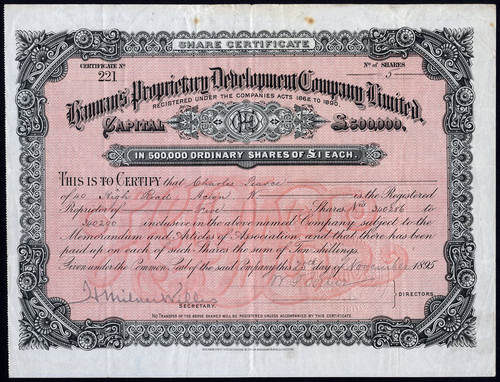 SHARE CERTIFICATE
CERTIFICATE No 221
No of SHARES 5
Hannan's Proprietary Development Company Limited.
REGISTERED UNDER THE COMPANIES ACTS 1862 TO 1890
CAPITAL £500,000,
IN 500,000 ORDINARY SHARES OF £1 EACH.
THIS IS TO CERTIFY that Charles Pearce
of 40 High Road Acton W is the Registered
Proprietor of Five Shares Nos 300286 to
300290 inclusive in the above named Company, subject to the
Memorandum and Articles of Association, and that there has been
paid up on each of such Shares the sum of Ten shillings.
Given under the Common Seal of the said Company this day of November 1895
DIRECTORS
SECRETARY.
NO TRANSFER OF THE ABOVE SHARES WILL BE REGISTERED UNLESS ACCOMPANIED BY THIS CERTIFICATE.